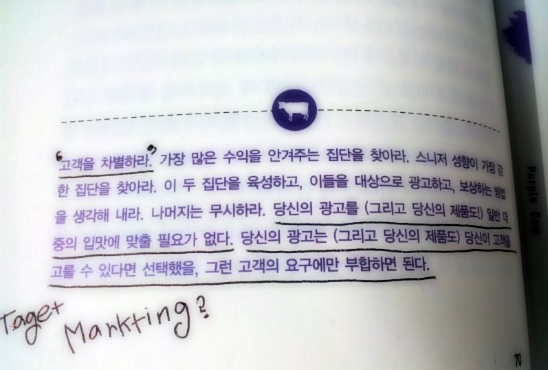 "고객을 차별하라." 가장 많은 수익을 안겨주는 집단을 찾아라. 스니저 성향이 가장 강
한 집단을 찾아라. 이 두 집단을 육성하고, 이들을 대상으로 광고하고, 보상하는 방법
을 생각해 내라. 나머지는 무시하라. 당신의 광고를 (그리고 당신의 제품도!) 일반 대
중의 입맛에 맞출 필요가 없다. 당신의 광고는 (그리고 당신의 제품도) 당신이 고객을
고를 수 있다면 선택했을, 그런 고객의 요구에만 부합하면 된다.
Taget Markting?
Purple Cow